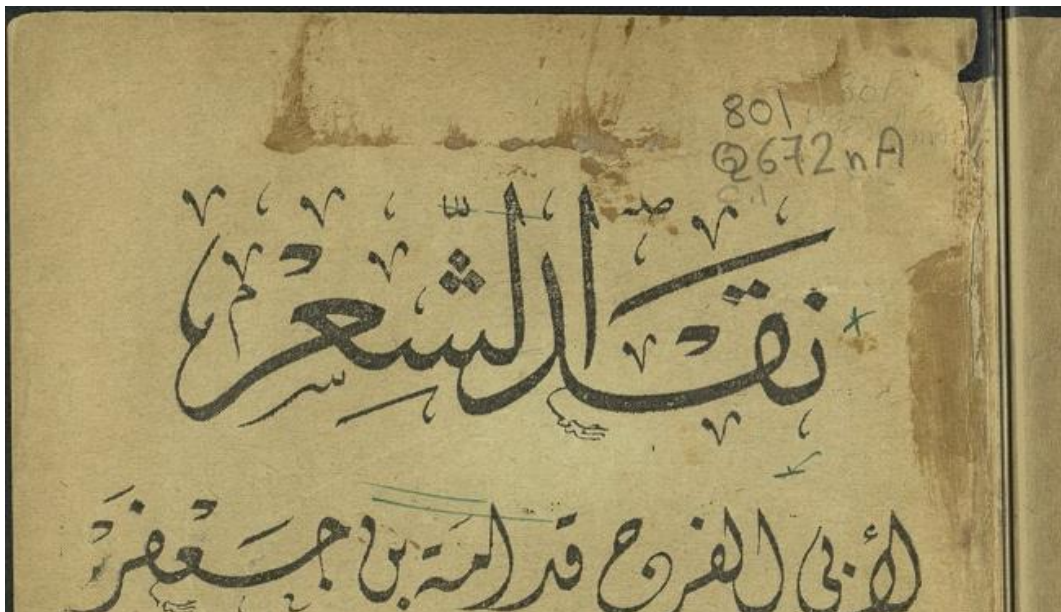 801
Q672nA
نقد الشعر
لأبي الفرج قدامة بن جعفر